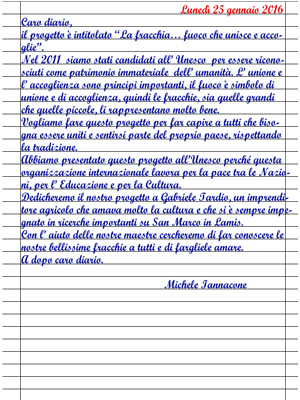 Lunedì 25 gennaio 2016
Caro diario,
il progetto è intitolato “La fracchia... fuoco che unisce e acco-
glie”.
Nel 2011 siamo stati candidati all’ Unesco per essere ricono-
sciuti come patrimonio immateriale dell’ umanità. L’ unione e
l’ accoglienza sono principi importanti, il fuoco è simbolo di
unione e di accoglienza, quindi le fracchie, sia quelle grandi
che quelle piccole, li rappresentano molto bene.
Vogliamo fare questo progetto per far capire a tutti che biso-
gna essere uniti e sentirsi parte del proprio paese, rispettando
la tradizione.
Abbiamo presentato questo progetto all’Unesco perché questa
organizzazione internazionale lavora per la pace tra le Nazio-
ni, per l’ Educazione e per la Cultura.
Dedicheremo il nostro progetto a Gabriele Tardio, un imprendi-
tore agricolo che amava molto la cultura e che si è sempre impe-
gnato in ricerche importanti su San Marco in Lamis.
Con l’ aiuto delle nostre maestre cercheremo di far conoscere le
nostre bellissime fracchie a tutti e di fargliele amare.
A dopo caro diario.
Michele Iannacone